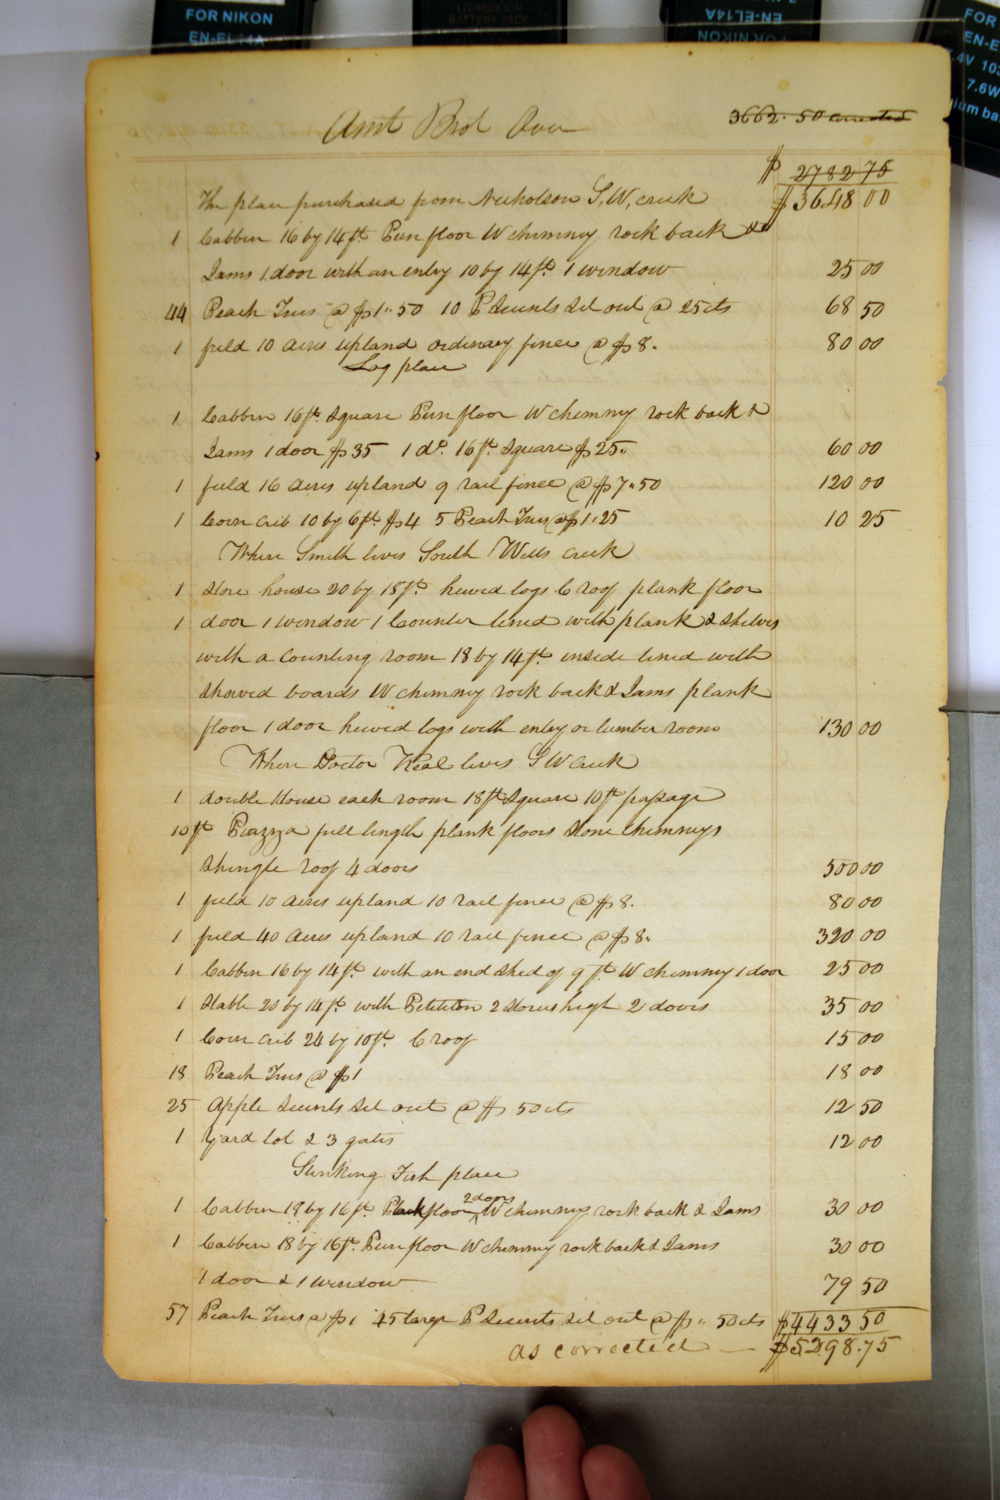 FOR NIKON
EN-EL14A
LITHIUM ION
BATTERY PACK
EN-EL14A
FOR NIKON
FOR
EN-E
7.6W
Amt Brot Over
3662.50 corrected
$ 2782 75
The place purchased from Nicholson S, W, creek $3648 00
1 Cabbin 16 by 14ft. Pun floor W chimney rock back &
Jams 1 door with an entry 10 by 14ft. 1 window 25 00
44 Peach Trees @ $1..50 10 P Scients Set out @ 25cts 68 50
1 field 10 Acres upland ordinary fence @ $8. 80 00
Log place
1 Cabbin 16ft. Square Pun floor W chimney rock back &
Jams 1 door $35 1 do. 16ft. Square $25.. 60 00
1 field 16 Acres upland 9 rail fence @ $7.50 120 00
1 Corn crib 10 by 6ft. $4 5 Peach Trees @ $1.25 10 25
Where Smith lives South Wills Creek
1 Store house 20 by 18ft. hewed logs C roof plank floor
1 door 1 window 1 Counter lined with plank & shelves
with a Counting room 18 by 14ft. inside lined with
Shaved boards W chimney rock back & Jams plank
floor 1 door hewed logs with entry or lumber room 130 00
Where Doctor Neal lives S W Creek
1 double House each room 18ft Square 10ft passage
10 ft Piazza full length plank floors Stone Chimneys
Shingle roof 4 doors 500 00
1 field 10 Acres upland 10 rail fence @ $8. 80 00
1 field 40 Acres upland 10 rail fence @ $8. 320 00
1 Cabbin 16 by 14ft. with an end Shed of 9 ft. W chimney 1 door 25 00
1 Stable 20 by 14ft. with Petitition 2 Stories high 2 doors 35 00
1 Corn crib 24 by 10ft. C roof 15 00
18 Peach Trees @ $1 18 00
25 Apple Scients Set out @ $ 50cts 12 50
1 Yard lot & 3 gates 12 00
Stinking Fish place
1 Cabbin 18 by 16ft. Plank floor 2 doors W chimney rock back & Jams 30 00
1 Cabbin 18 by 16ft. Pun floor W chimney rock back & Jams 30 00
1 door & 1 window 79 50
57 Peach Trees @ $1 45 large P Scients Set out @ $.. 50cts $4433 50
as corrected — $5298.75